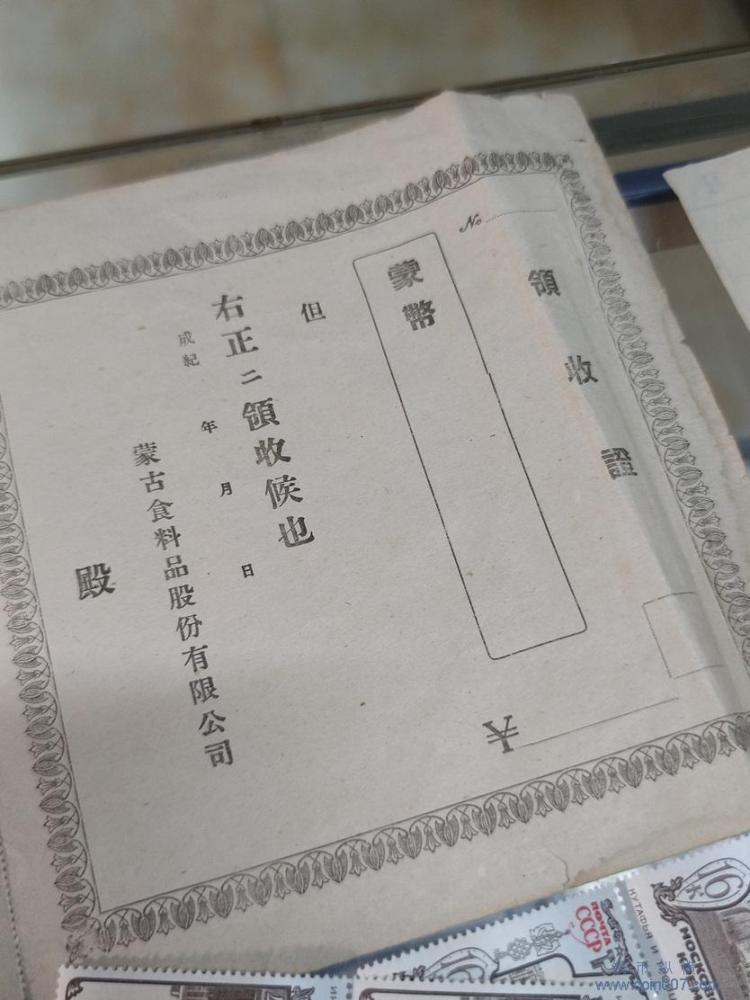 №
領收證
蒙幣
但
右正ニ領收候也
成紀 年 月 日
蒙古食料品股份有限公司
殿
ПОЧТА
СССР
16
16
КУТАФЬЯ И
www.coin007.com